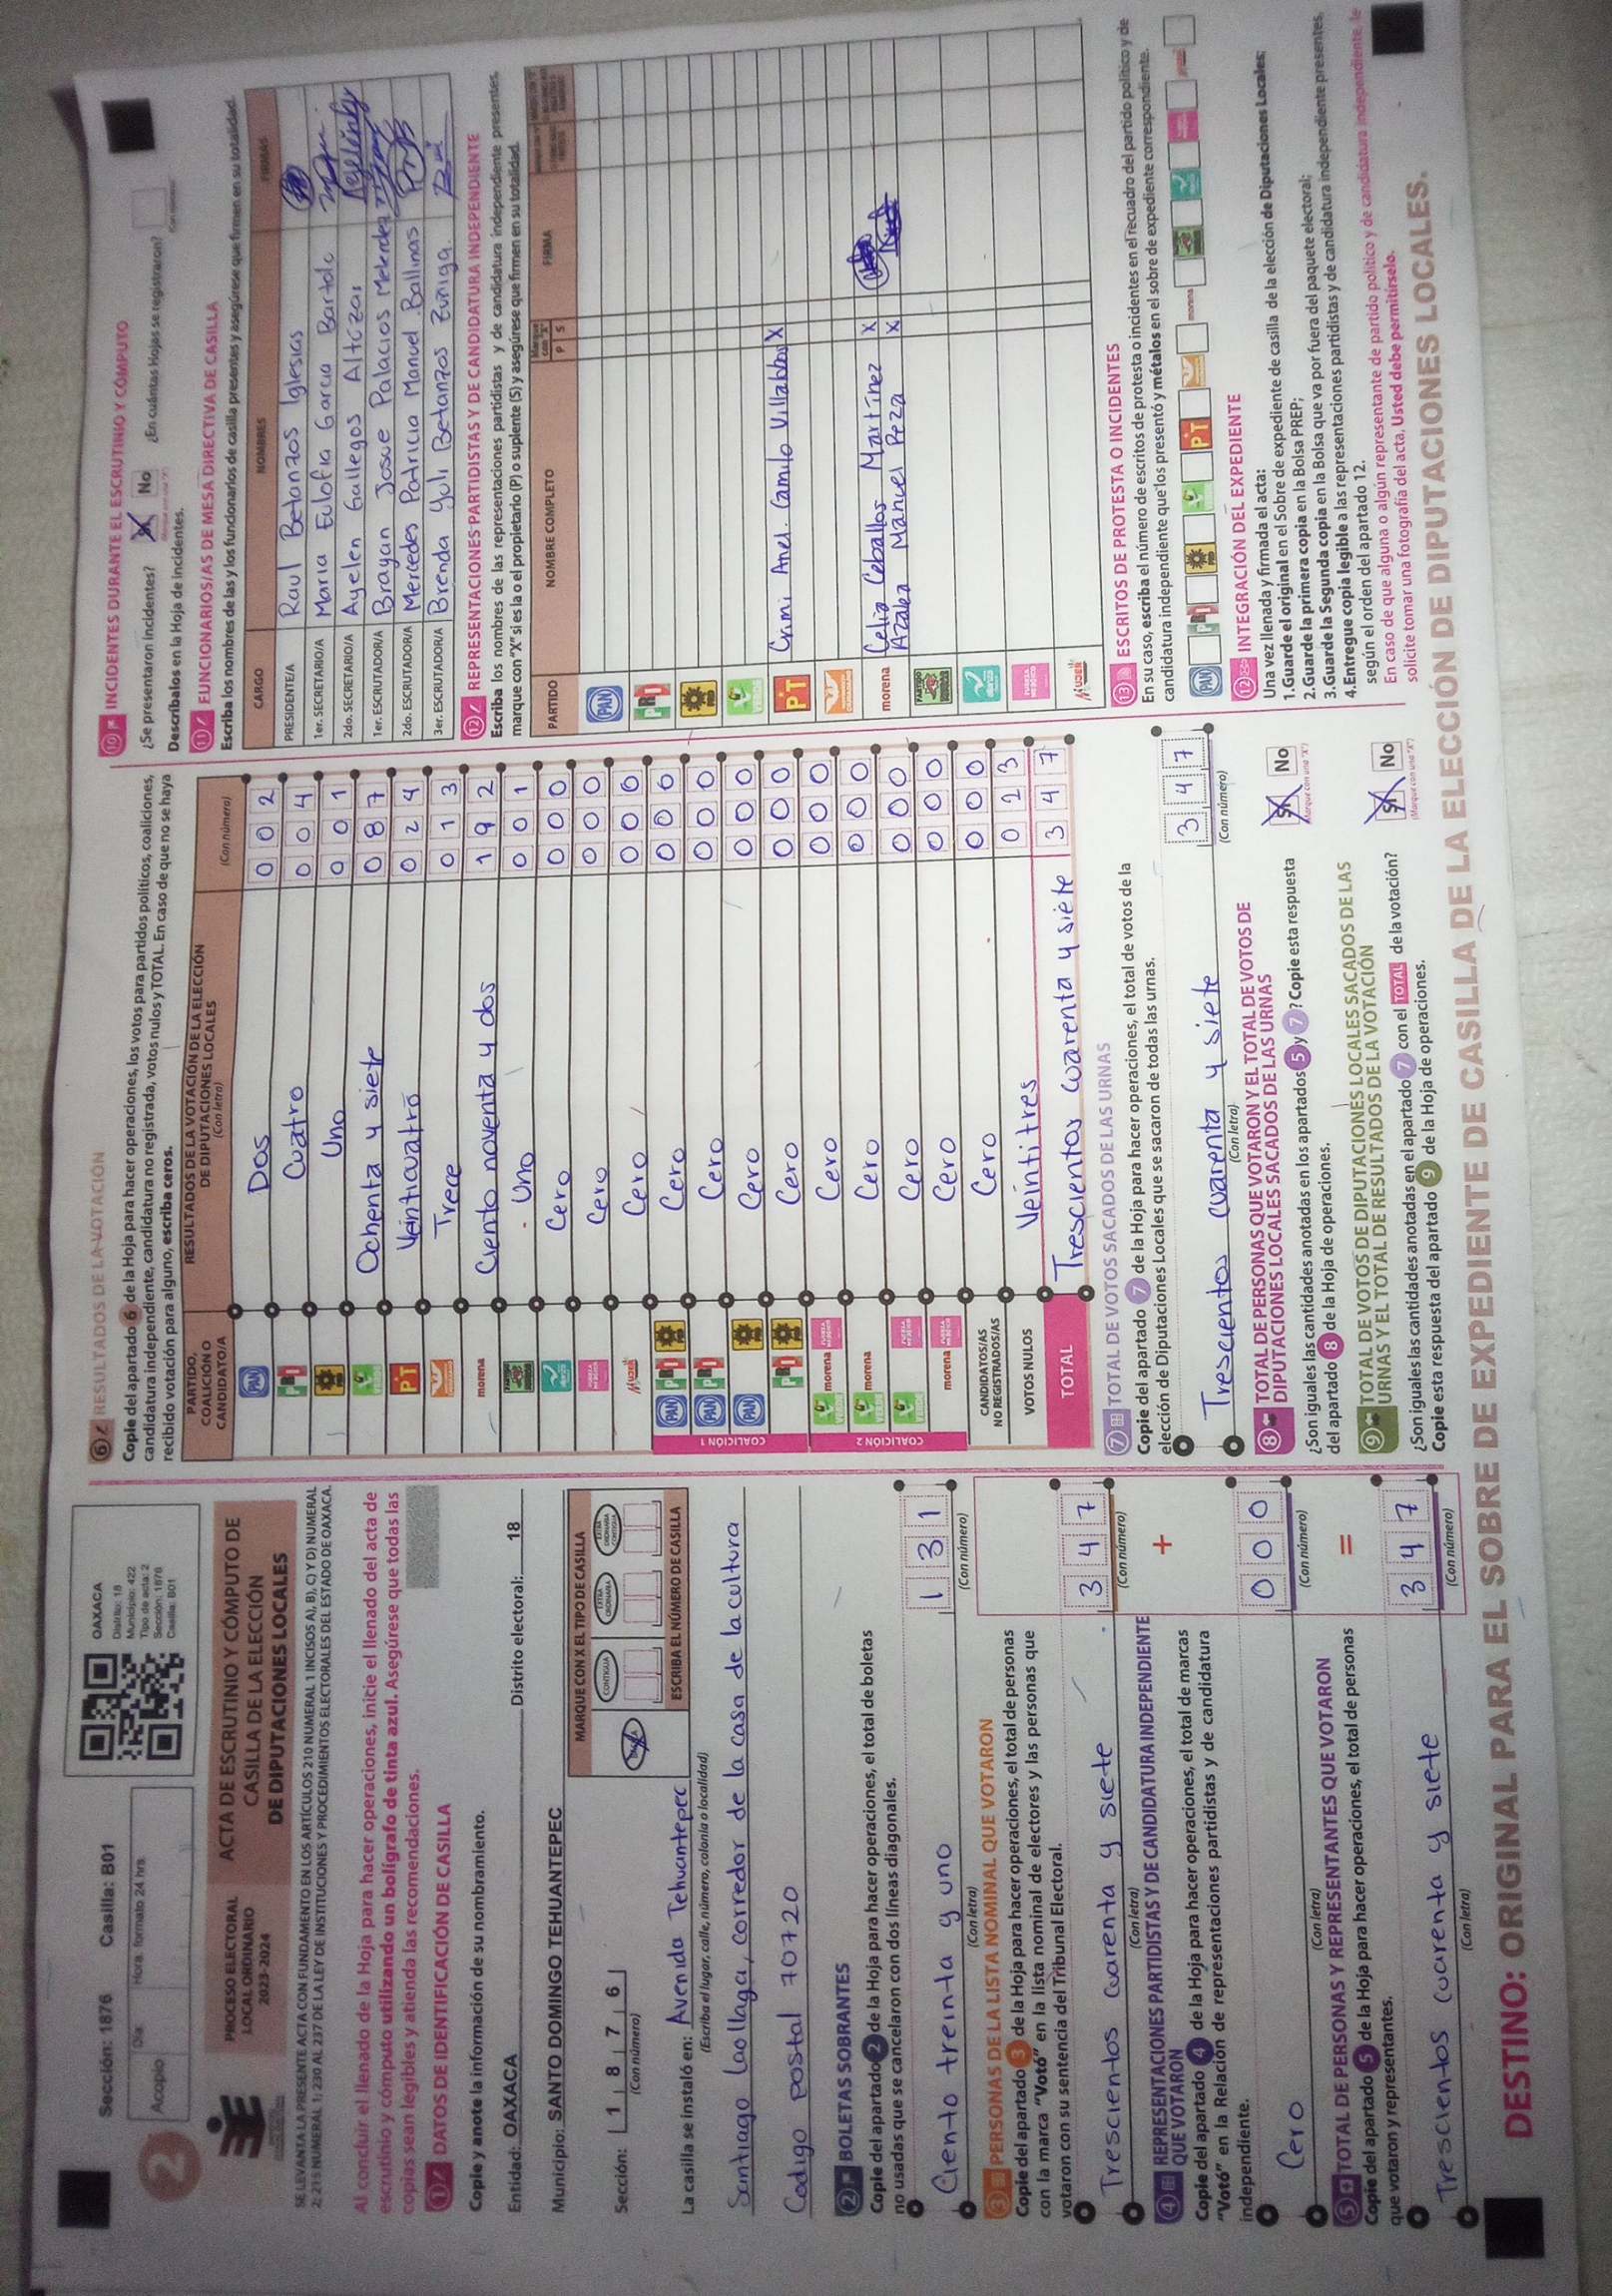 Sección: 1876 Casilla: B01
Acopio Día Hora formato 24 hrs.
OAXACA
Distrito: 18
Municipio: 422
Tipo de acta: 2
Sección: 1876
Casilla: B01
2
PROCESO ELECTORAL
LOCAL ORDINARIO
2023-2024
ACTA DE ESCRUTINIO Y CÓMPUTO DE
CASILLA DE LA ELECCIÓN
DE DIPUTACIONES LOCALES
SE LEVANTA LA PRESENTE ACTA CON FUNDAMENTO EN LOS ARTÍCULOS 210 NUMERAL 1 INCISOS A), B), C) Y D) NUMERAL
2; 215 NUMERAL 1; 230 AL 237 DE LA LEY DE INSTITUCIONES Y PROCEDIMIENTOS ELECTORALES DEL ESTADO DE OAXACA.
Al concluir el llenado de la Hoja para hacer operaciones, inicie el llenado del acta de
escrutinio y cómputo utilizando un bolígrafo de tinta azul. Asegúrese que todas las
copias sean legibles y atienda las recomendaciones.
1 DATOS DE IDENTIFICACIÓN DE CASILLA
Copie y anote la información de su nombramiento.
Entidad: OAXACA Distrito electoral: 18
Municipio: SANTO DOMINGO TEHUANTEPEC
Sección: 1 8 7 6
(Con número)
MARQUE CON X EL TIPO DE CASILLA
BÁSICA CONTIGUA EXTRA ORDINARIA EXTRA ORDINARIA CONTIGUA
ESCRIBA EL NÚMERO DE CASILLA
La casilla se instaló en: Avenida Tehuantepec
(Escriba el lugar, calle, número, colonia o localidad)
Santiago lao llaga, corredor de la casa de la cultura
Codigo postal 70720
2 BOLETAS SOBRANTES
Copie del apartado 2 de la Hoja para hacer operaciones, el total de boletas
no usadas que se cancelaron con dos líneas diagonales.
Ciento treinta y uno 1 3 1
(Con letra) (Con número)
3 PERSONAS DE LA LISTA NOMINAL QUE VOTARON
Copie del apartado 3 de la Hoja para hacer operaciones, el total de personas
con la marca "Votó" en la lista nominal de electores y las personas que
votaron con su sentencia del Tribunal Electoral.
Trescientos cuarenta y siete 3 4 7
(Con letra) (Con número)
+
4 REPRESENTACIONES PARTIDISTAS Y DE CANDIDATURA INDEPENDIENTE
QUE VOTARON
Copie del apartado 4 de la Hoja para hacer operaciones, el total de marcas
"Votó" en la Relación de representaciones partidistas y de candidatura
independiente.
Cero 0 0 0
(Con letra) (Con número)
=
5 TOTAL DE PERSONAS Y REPRESENTANTES QUE VOTARON
Copie del apartado 5 de la Hoja para hacer operaciones, el total de personas
que votaron y representantes.
Trescientos cuarenta y siete 3 4 7
(Con letra) (Con número)
6 RESULTADOS DE LA VOTACIÓN
Copie del apartado 6 de la Hoja para hacer operaciones, los votos para partidos políticos, coaliciones,
candidatura independiente, candidatura no registrada, votos nulos y TOTAL. En caso de que no se haya
recibido votación para alguno, escriba ceros.
PARTIDO,
COALICIÓN O
CANDIDATO/A
RESULTADOS DE LA VOTACIÓN DE LA ELECCIÓN
DE DIPUTACIONES LOCALES
(Con letra) (Con número)
PAN Dos 0 0 2
PRI Cuatro 0 0 4
PRD Uno 0 0 1
VERDE Ochenta y siete 0 8 7
PT Veinticuatro 0 2 4
Trece 0 1 3
morena Ciento noventa y dos 1 9 2
Uno 0 0 1
Cero 0 0 0
Cero 0 0 0
MUJER Cero 0 0 0
COALICIÓN 1
PAN PRI PRD Cero 0 0 0
PAN PRI Cero 0 0 0
PAN PRD Cero 0 0 0
PRI PRD Cero 0 0 0
COALICIÓN 2
VERDE morena FUERZA Cero 0 0 0
VERDE morena Cero 0 0 0
VERDE FUERZA Cero 0 0 0
morena FUERZA Cero 0 0 0
CANDIDATOS/AS
NO REGISTRADOS/AS Cero 0 0 0
VOTOS NULOS Veintitres 0 2 3
TOTAL Trescientos cuarenta y siete 3 4 7
7 TOTAL DE VOTOS SACADOS DE LAS URNAS
Copie del apartado 7 de la Hoja para hacer operaciones, el total de votos de la
elección de Diputaciones Locales que se sacaron de todas las urnas.
Trescientos cuarenta y siete 3 4 7
(Con letra) (Con número)
8 TOTAL DE PERSONAS QUE VOTARON Y EL TOTAL DE VOTOS DE
DIPUTACIONES LOCALES SACADOS DE LAS URNAS
¿Son iguales las cantidades anotadas en los apartados 5 y 7? Copie esta respuesta
del apartado 8 de la Hoja de operaciones.
Sí No
(Marque con una "X")
9 TOTAL DE VOTOS DE DIPUTACIONES LOCALES SACADOS DE LAS
URNAS Y EL TOTAL DE RESULTADOS DE LA VOTACIÓN
¿Son iguales las cantidades anotadas en el apartado 7 con el TOTAL de la votación?
Copie esta respuesta del apartado 9 de la Hoja de operaciones.
Sí No
(Marque con una "X")
10 INCIDENTES DURANTE EL ESCRUTINIO Y CÓMPUTO
¿Se presentaron incidentes? Sí No ¿En cuántas Hojas se registraron?
(Marque con una "X") (Con número)
Descríbalos en la Hoja de incidentes.
11 FUNCIONARIOS/AS DE MESA DIRECTIVA DE CASILLA
Escriba los nombres de las y los funcionarios de casilla presentes y asegúrese que firmen en su totalidad.
CARGO NOMBRES FIRMAS
PRESIDENTE/A Raul Betanzos Iglesias
1er. SECRETARIO/A Maria Eulofia Garcia Bartolo
2do. SECRETARIO/A Ayelen Gallegos Altúzar
1er. ESCRUTADOR/A Brayan Josue Palacios Melendez
2do. ESCRUTADOR/A Mercedes Patricia Manuel Ballinas
3er. ESCRUTADOR/A Brenda Yuli Betanzos Zuñiga.
12 REPRESENTACIONES PARTIDISTAS Y DE CANDIDATURA INDEPENDIENTE
Escriba los nombres de las representaciones partidistas y de candidatura independiente presentes,
marque con "X" si es la o el propietario (P) o suplente (S) y asegúrese que firmen en su totalidad.
PARTIDO NOMBRE COMPLETO Marque con "X" P S FIRMA
PAN
PRI
PRD
VERDE
PT Crimi Anel. Camilo Villalobos X
morena Celia Ceballos Martínez X
Azalea Manuel Peza X
MUJER
13 ESCRITOS DE PROTESTA O INCIDENTES
En su caso, escriba el número de escritos de protesta o incidentes en el recuadro del partido político y de
candidatura independiente que los presentó y métalos en el sobre de expediente correspondiente.
PAN PRI PRD VERDE PT morena
INTEGRACIÓN DEL EXPEDIENTE
Una vez llenada y firmada el acta:
1.Guarde el original en el Sobre de expediente de casilla de la elección de Diputaciones Locales;
2.Guarde la primera copia en la Bolsa PREP;
3.Guarde la Segunda copia en la Bolsa que va por fuera del paquete electoral;
4.Entregue copia legible a las representaciones partidistas y de candidatura independiente presentes,
según el orden del apartado 12.
En caso de que alguna o algún representante de partido político y de candidatura independiente le
solicite tomar una fotografía del acta, Usted debe permitírselo.
DESTINO: ORIGINAL PARA EL SOBRE DE EXPEDIENTE DE CASILLA DE LA ELECCIÓN DE DIPUTACIONES LOCALES.